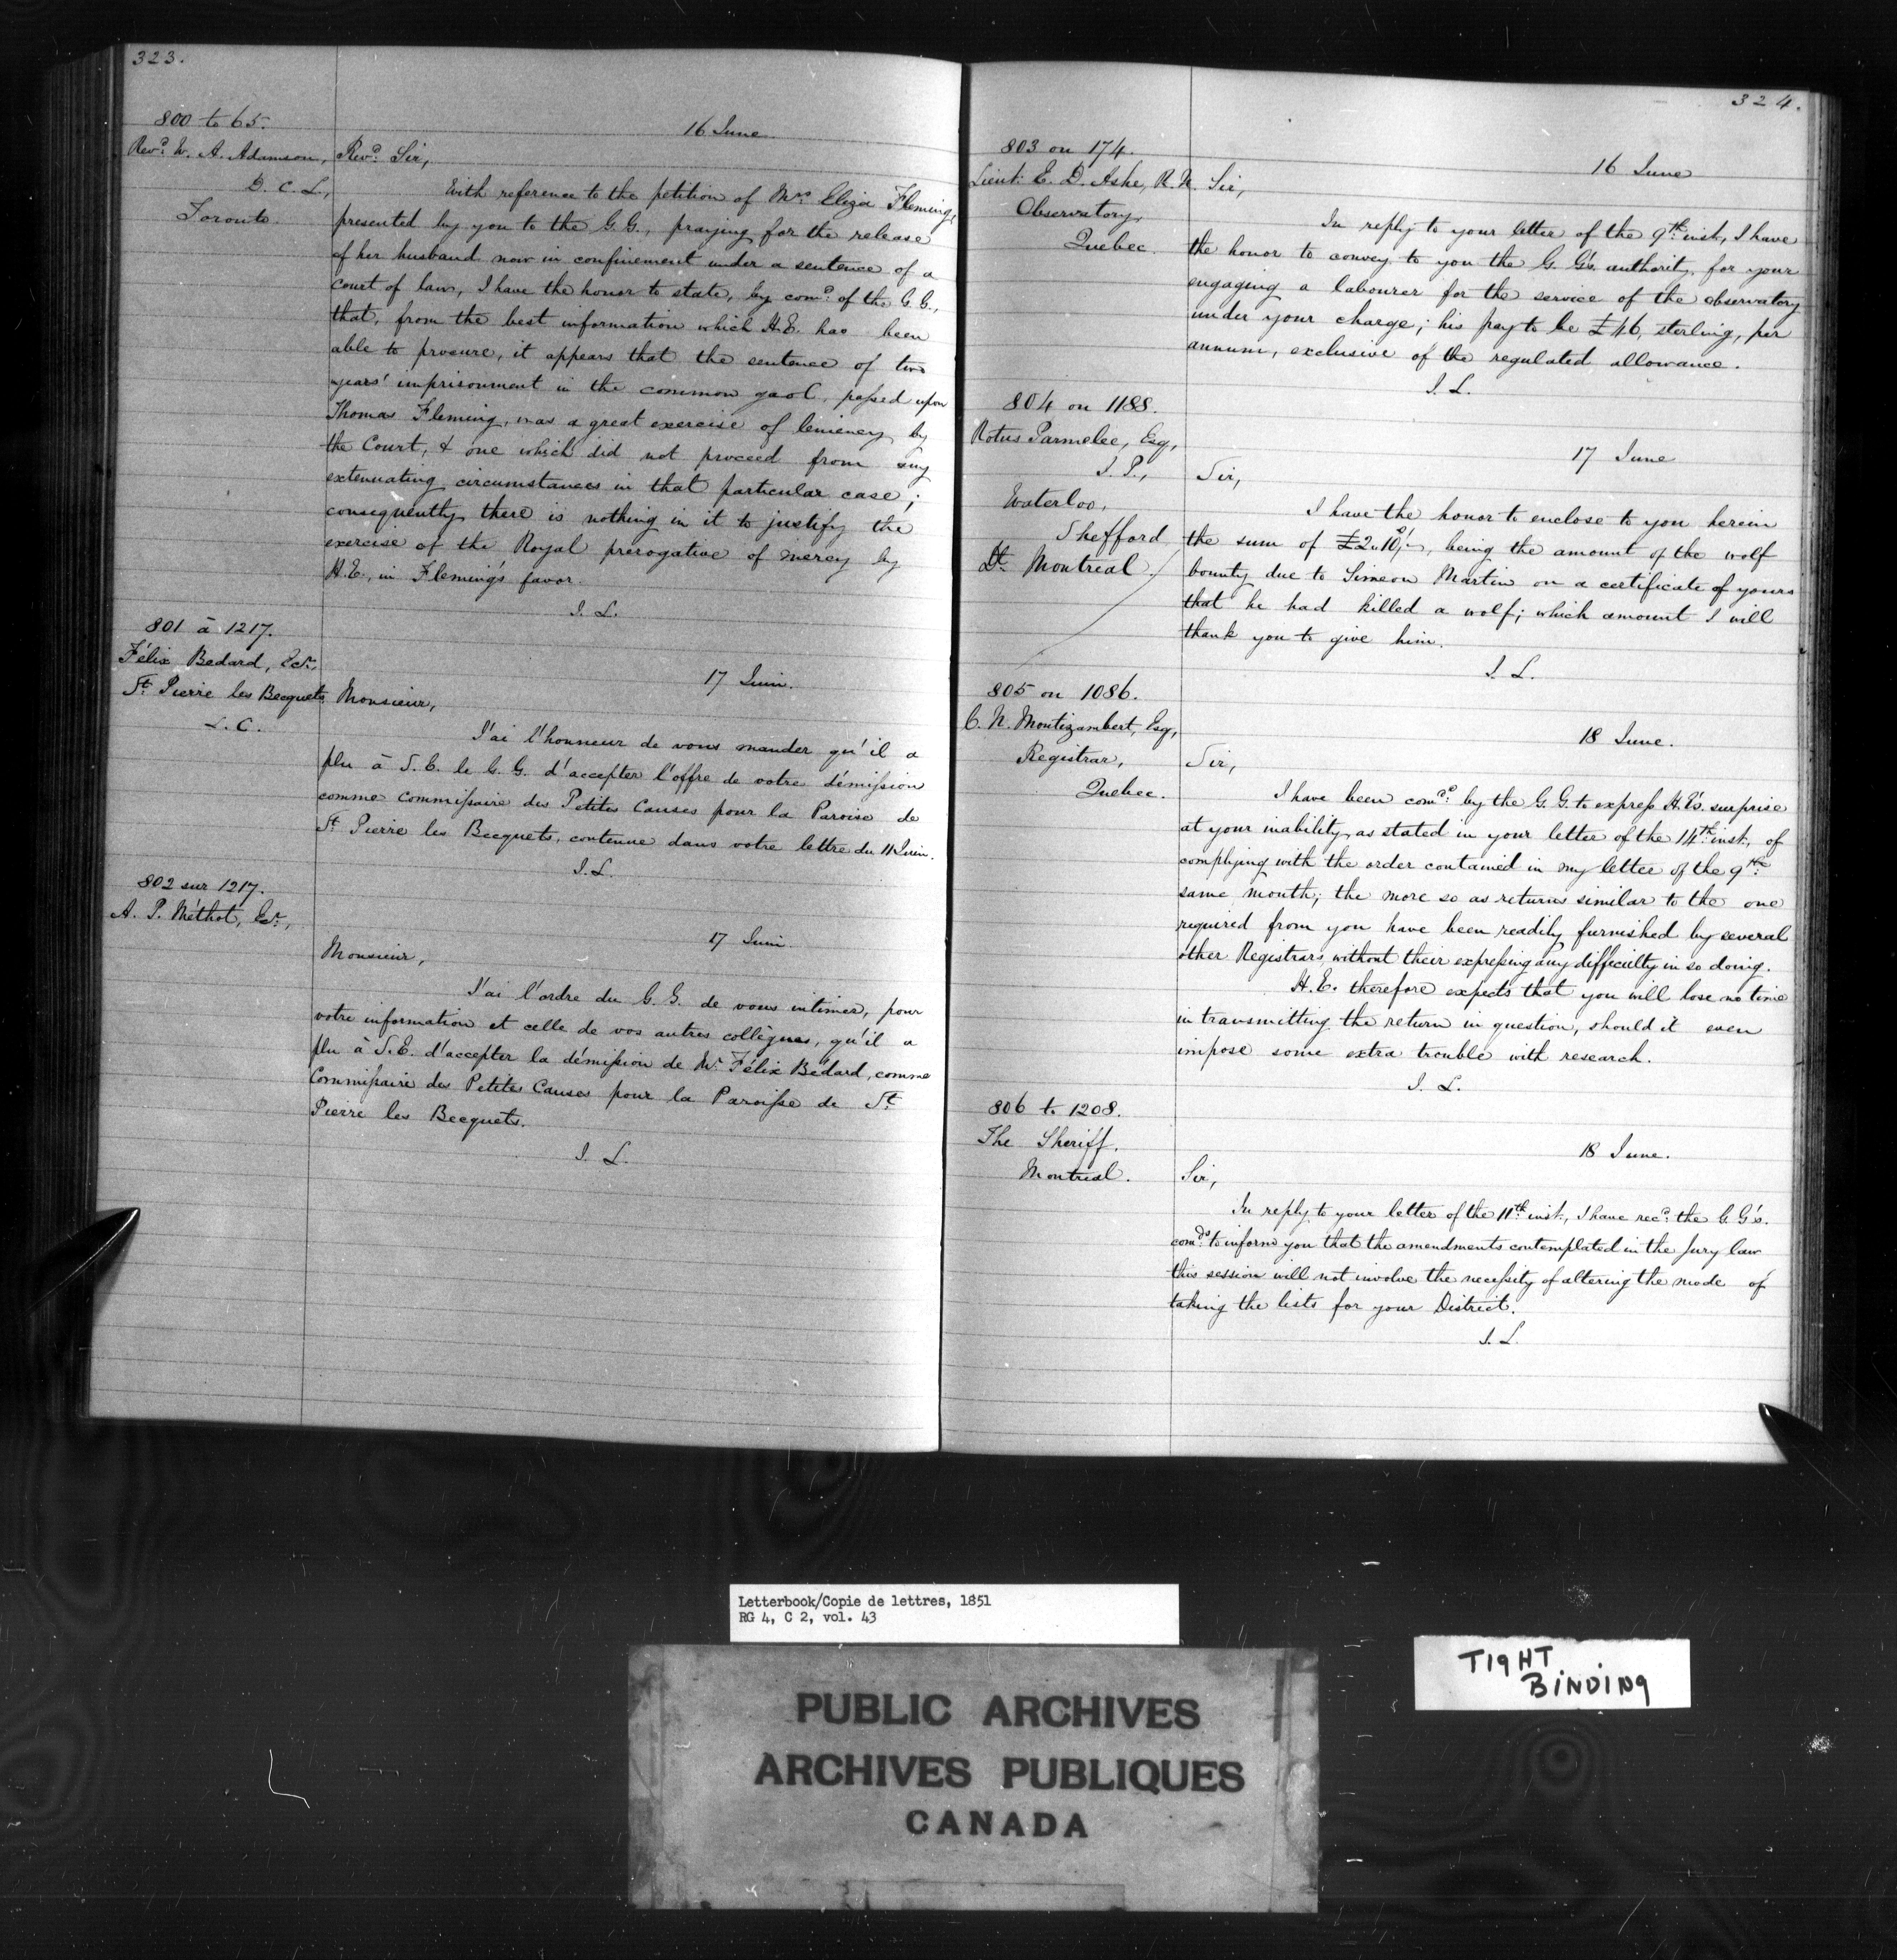 323.
800 to 65.
16 June
Revd. W. A. Adamson,
D. C. L,
Toronto.
Revd. Sir,
With reference to the petition of Mrs. Eliza Fleming,
presented by you to the G.G., praying for the release
of her husband now in confinement under a sentence of a
court of law, I have the honor to state, by comd. of the G.G.,
that, from the best information which H.E. has been
able to procure, it appears that the sentence of two
years' imprisonment in the common gaol, passed upon
Thomas Fleming, was a great exercise of leniency by
the Court, & one which did not proceed from any
extenuating circumstances in that particular case;
consequently there is nothing in it to justify the
exercise of the Royal prerogative of mercy by
H.E., in Fleming's favor.
J. L.
801 à 1217.
Félix Bedard, Ecr.
St. Pierre les Becquets
L. C.
17 Juin.
Monsieur,
J'ai l'honneur de vous mander qu'il a
plu à S.E. le G.G. d'accepter l'offre de votre démission
comme Commissaire des Petites Causes pour la Paroise de
St. Pierre les Becquets, contenue dans votre lettre du 11 Juin.
J.L.
802 sur 1217.
A. P. Méthot, Ecr.,
17 Juin.
Monsieur,
J'ai l'ordre du G.G. de vous intimer, pour
votre information et celle de vos autres collègues, qu'il a
plu à S.E. d'accepter la démission de Mr. Félix Bedard, comme
Commissaire des Petites Causes pour la Paroisse de St.
Pierre les Becquets.
J. L.
324.
803 on 174.
Lieut. E. D. Ashe, R.N.
Observatory,
Quebec.
16 June
Sir,
In reply to your letter of the 9th. inst, I have
the honor to convey to you the G. G's. authority for your
engaging a labourer for the service of the observatory
under your charge; his pay to be £46, sterling, per
annum, exclusive of the regulated allowance.
J. L.
804 on 1188.
Rotus Parmelee, Esq,
J. P.,
Waterloo,
Shefford
Dt. Montreal.
17 June
Sir,
I have the honor to enclose to you herein
the sum of £2.10/-, being the amount of the wolf
bounty due to Simeon Martin on a certificate of yours
that he had killed a wolf; which amount I will
thank you to give him.
J. L.
805 on 1086.
C. N. Montizambert, Esq,
Registrar,
Quebec.
18 June.
Sir,
I have been comdd. by the G.G. to express H.E's. surprise
at your inability, as stated in your letter of the 14th. inst., of
complying with the order contained in my letter of the 9th.
same month; the more so as returns similar to the one
required from you have been readily furnished by several
other Registrars without their expressing any difficulty in so doing.
H.E. therefore expects that you will lose no time
in transmitting the return in question, should it even
impose some extra trouble with research.
J. L.
806 to 1208.
The Sheriff,
Montreal.
18 June.
Sir,
In reply to your letter of the 11th. inst., I have recd. the G.G's.
comds. to inform you that the amendments contemplated in the Jury law
this session will not involve the necessity of altering the mode of
taking the lists for your District.
J. L.
Letterbook/Copie de lettres, 1851
RG 4, C 2, vol. 43
TIGHT
BINDING
PUBLIC ARCHIVES
ARCHIVES PUBLIQUES
CANADA